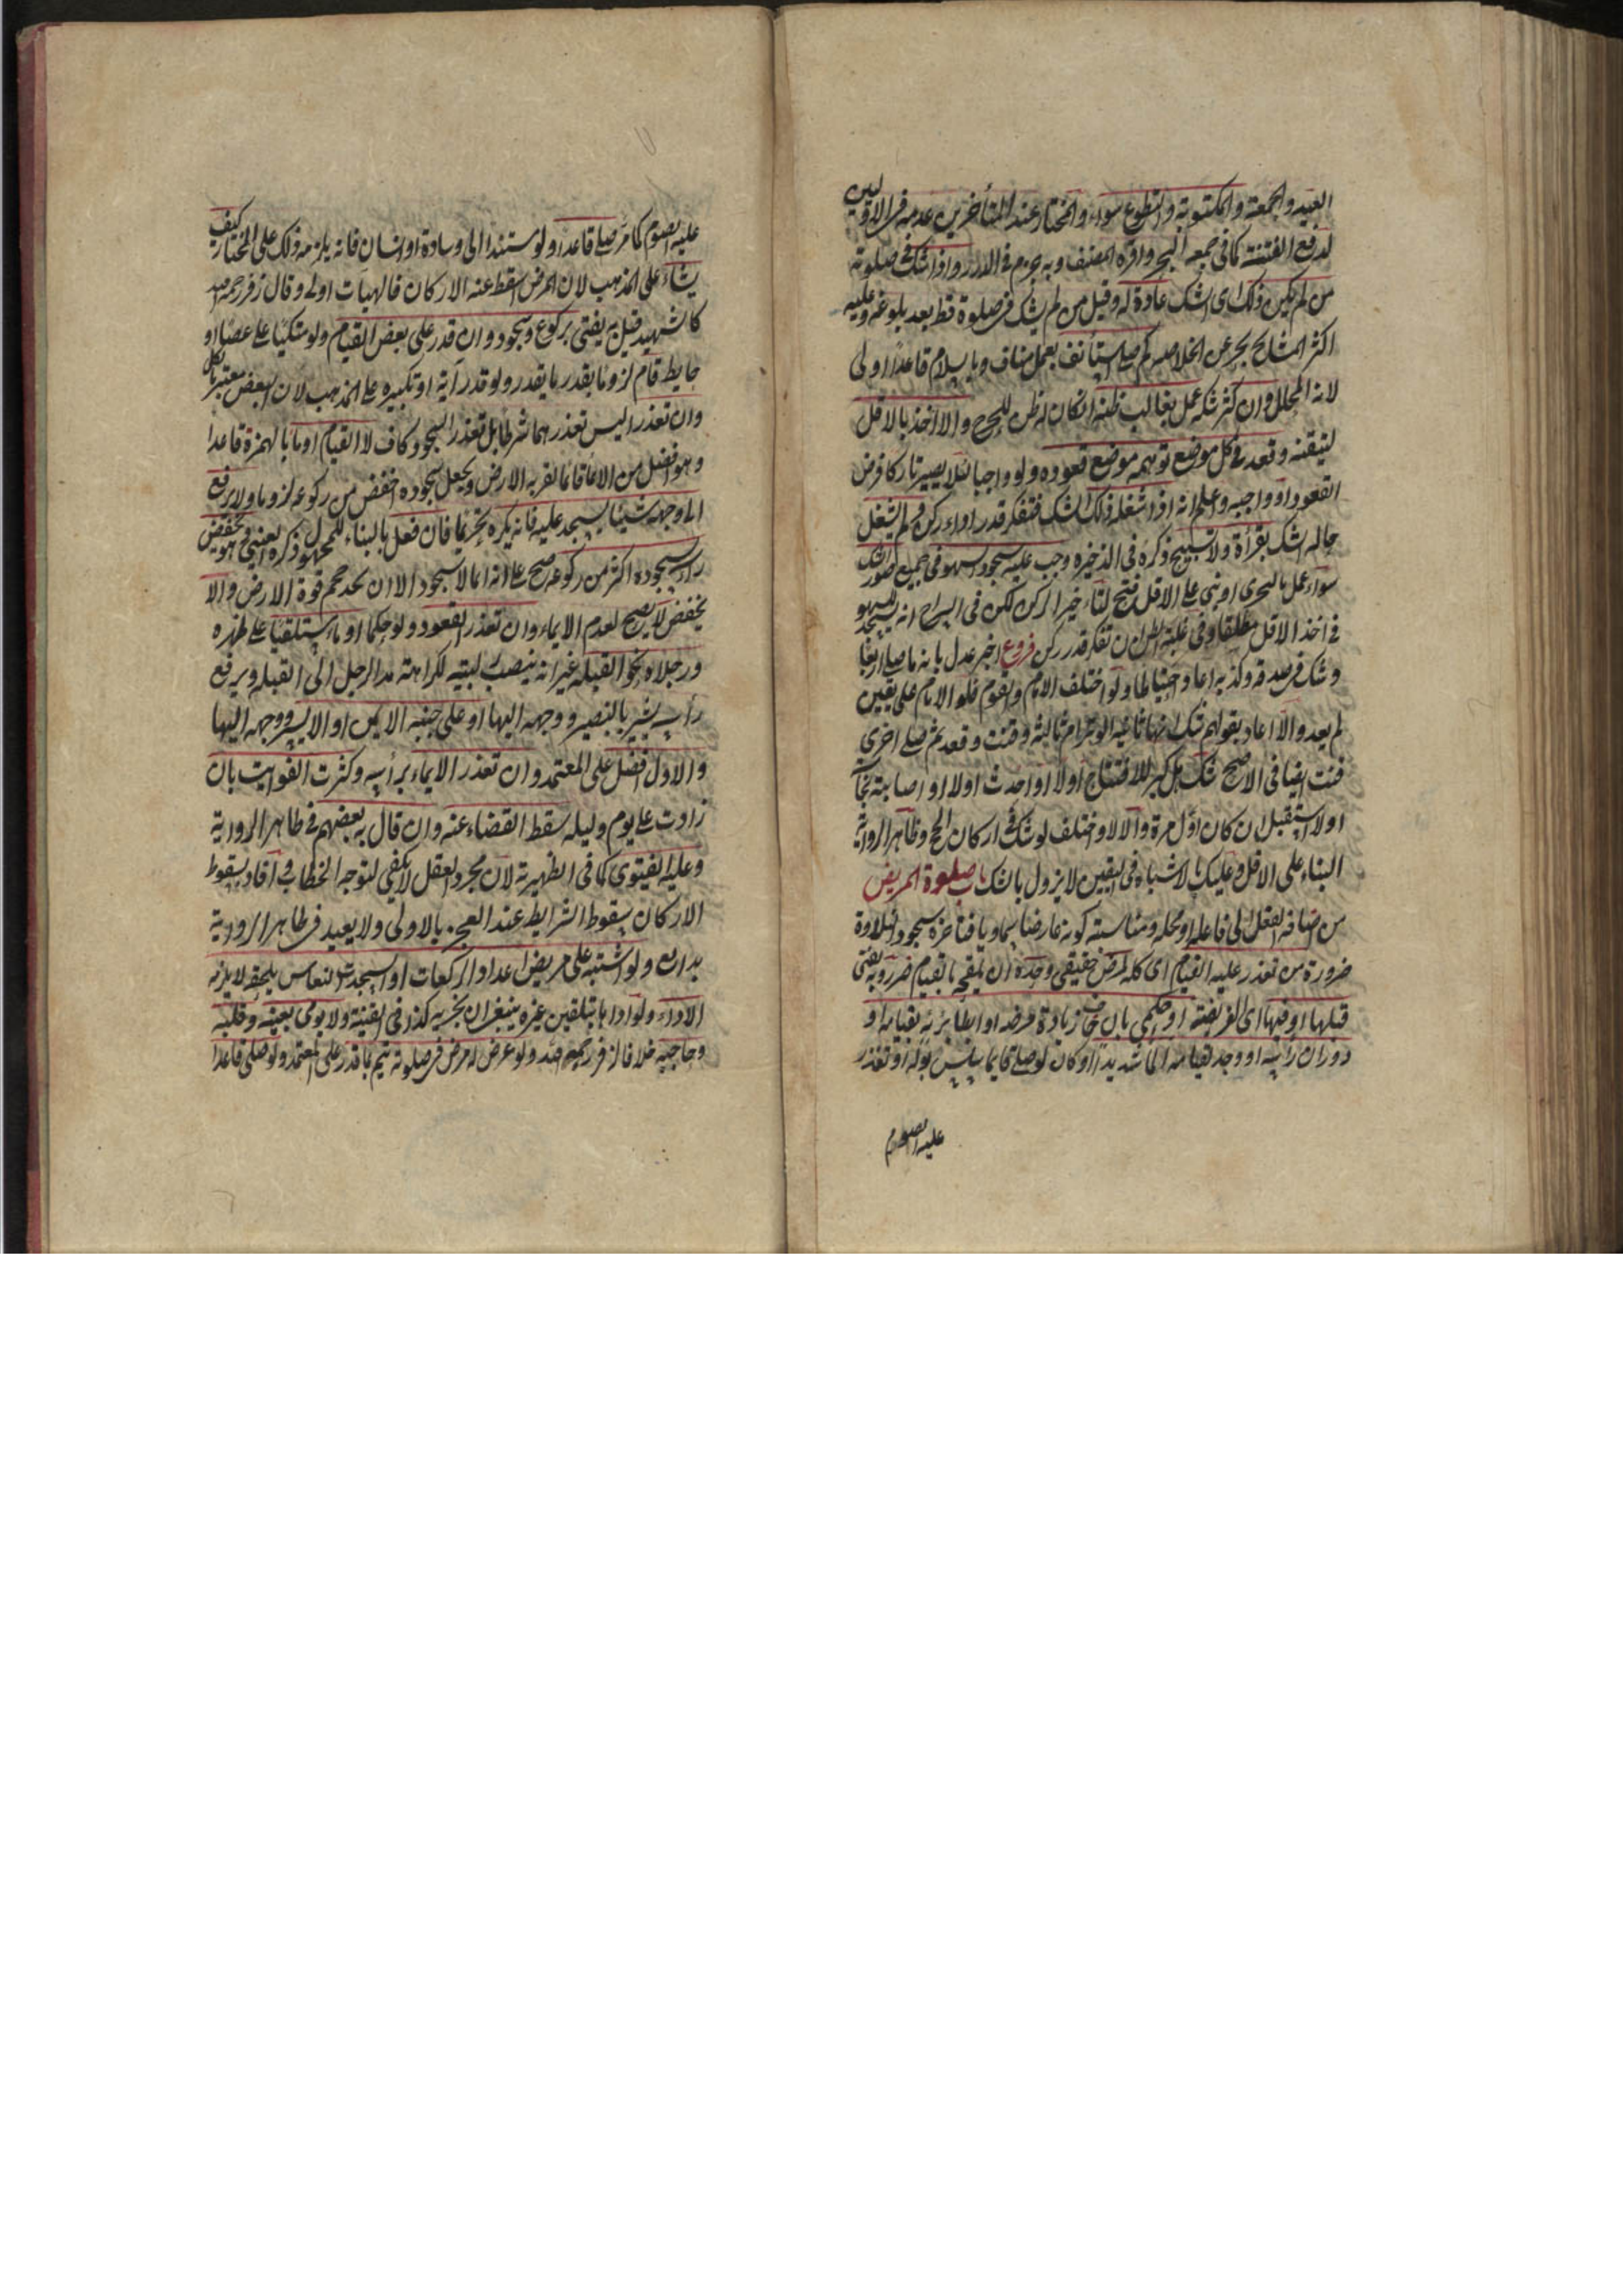 العيد والجمعة والمكتوبة والتطوع سواء والمختار عند المتأخرين عدمه في الاوليين
لدفع الفتنة كما في جمعة البحر واقره المصنف وبه جزم في الدرر واذا شك في صلوته
من لم يكن ذلك اى الشك عادة له وقيل من لم يشك في صلوة قط بعد بلوغه وعليه
اكثر المشايخ بحر عن الخلاصه كم صلى استأنف بعمل مناف وبالسلام قاعدا اولى
لانه المحلل وان كثر شكه عمل بغالب ظنه ان كان له ظن للحرج والا اخذ بالاقل
لتيقنه وقعد في كل موضع توهمه موضع قعوده ولو واجبا لئلا يصير تاركا فرض
القعود او واجبه واعلم انه اذا شغله ذلك الشك فتفكر قدر اداء ركن ولم يشتغل
حاله الشك بقرأة ولا تسبيح ذكره في الذخيره وجب عليه سجود السهو في جميع صور الشك
سواء عمل بالتحرى او بنى على الاقل فتح لتأخير الركن لكن في السراج انه يسجد للسهو
في اخذ الاقل مطلقا وفي غلبة الظن ان تفكر قدر ركن فروع اخبر عدل بانه ما صلى اربعا
وشك في صدقه وكذبه اعاد احتياطا ولو اختلف الامام والقوم فلو الامام على يقين
لم يعد والا اعاد بقولهم شك انها ثانية الوتر ام ثالثة وقنت وقعد ثم صلى اخرى
قنت ايضا في الاصح شك هل كبر للافتتاح اولا او احدث اولا او اصابته نجا
اولا استقبل ان كان اول مرة والا لا واختلف لو شك في اركان الحج وظاهر الرواية
البناء على الاقل وعليك بالاشباه في اليقين لا يزول بالشك باب صلوة المريض
من اضافة الفعل الى فاعله او محله ومناسبته كونه عارضا سماويا فتأخر سجود التلاوة
ضرورة من تعذر عليه القيام اى كله لمرض حقيقي وحده ان يلحقه بالقيام ضرر وبه يفتى
قبلها او فيها اى الفريضة او حكمي بان خاف زيادة مرضه او ابطا برئه بقيامه او
دوران رأسه او وجد لقيامه الما شديدا او كان لو صلى قايما يسلس بوله او تعذر
عليه الصوم
عليه الصوم كما مر صلى قاعدا ولو مستندا الى وسادة او انسان فانه يلزمه ذلك على المختار كيف
يشاء على المذهب لان المرض اسقط عنه الاركان فالهيات اولى وقال زفر رحمه الله
كالشهيد قيل به يفتى بركوع وسجود وان قدر على بعض القيام ولو متكئا على عصا او
حايط قام لزوما بقدر ما يقدر ولو قدر آية او تكبيره على المذهب لان البعض معتبر بالكل
وان تعذرا ليس تعذرهما شرطا بل تعذر السجود كاف لا القيام اوما بالهمزة قاعدا
وهو افضل من الايماء قائما لقربه الارض ويجعل سجوده اخفض من ركوعه لزوما ولا يرفع
الى وجهه شيئا يسجد عليه فانه يكره تحريما فان فعل بالبناء للمجهول ذكره العيني وهو يخفض
رأسه بسجوده اكثر من ركوعه صح على انه ايما لا سجود الا ان يجد حجم قوة الارض والا
يخفض لا يصح لعدم الايماء وان تعذر القعود ولو حكما اوما مستلقيا على ظهره
ورجلاه نحو القبلة غير انه ينصب ركبتيه لكراهة مد الرجل الى القبله ويرفع
رأسه يسير ليصير وجهه اليها او على جنبه الايمن او الايسر ووجهه اليها
والاول افضل على المعتمد وان تعذر الايماء برأسه وكثرت الفوايت بان
زادت على يوم وليله سقط القضاء عنه وان قال بعضهم في ظاهر الرواية
وعليه الفتوى كما في الظهيرية لان مجرد العقل لا يكفي لتوجه الخطاب وافاد بسقوط
الاركان سقوط الشرايط عند العجز بالاولى ولا يعيد في ظاهر الرواية
بدايع ولو اشتبه على مريض اعداد الركعات او السجدات لنعاس يلحقه لا يلزمه
الاداء ولو اداها بتلقين غيره ينبغي ان يجزيه كذا في القنية ولا يومى بعينه وقلبه
وحاجبه خلافا لزفر رحمه الله ولو عرض له مرض في صلوته يتم بما قدر على المعتمد ولو صلى قاعدا